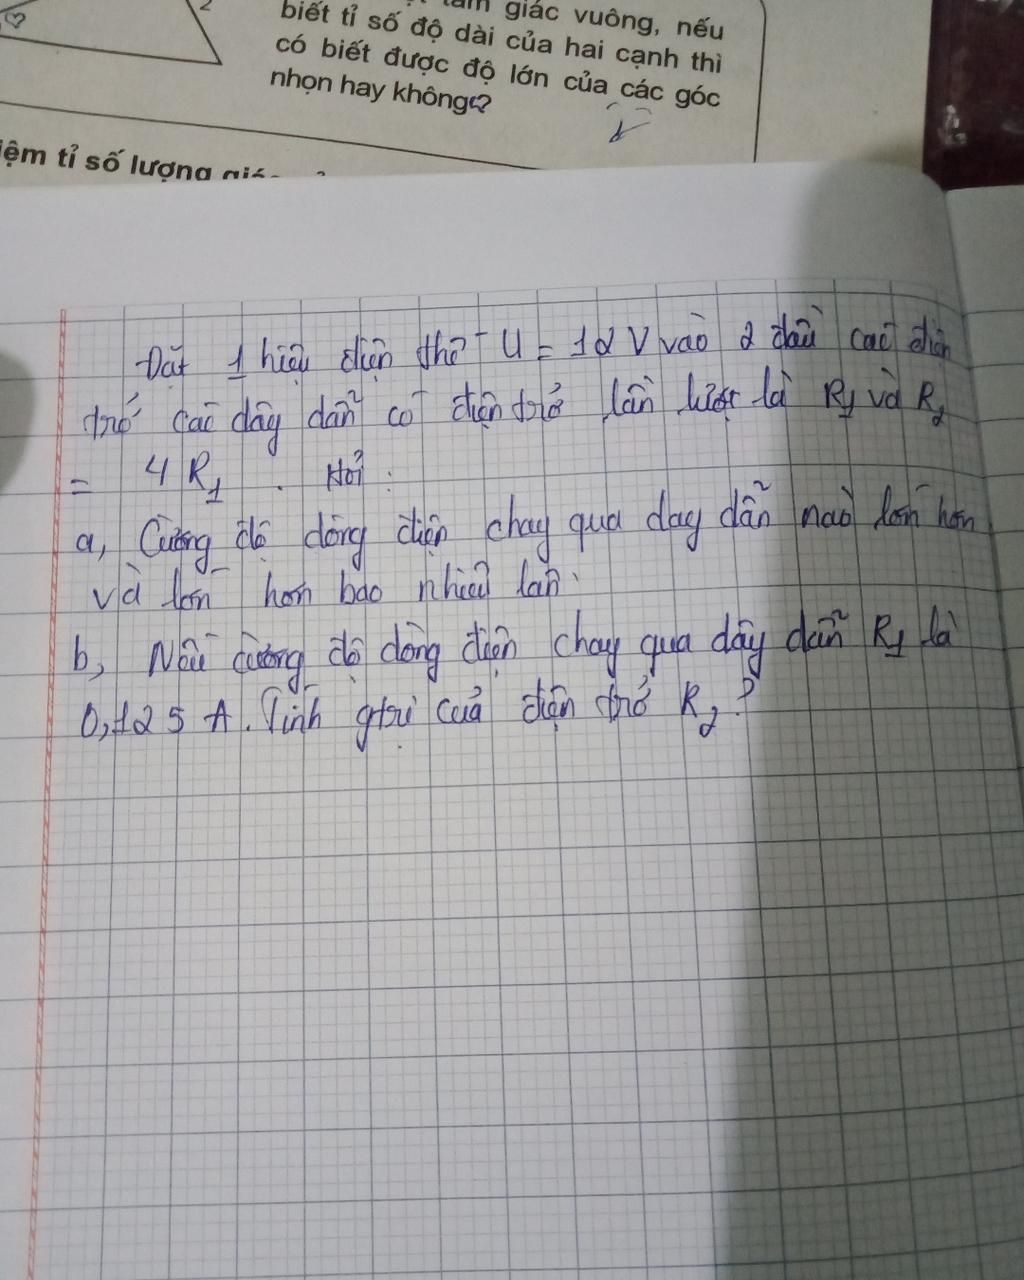 2
tam giác vuông, nếu
biết tỉ số độ dài của hai cạnh thì
có biết được độ lớn của các góc
nhọn hay không?
iệm tỉ số lượng giác
Đặt 1 hiệu điện thế U = 12 V vào 2 đầu các điện
trở các dây dẫn có điện trở lần lượt là R1 và R2
= 4 R1 . Hỏi :
a, Cường độ dòng điện chạy qua dây dẫn nào lớn hơn
và lớn hơn bao nhiêu lần.
b, Nếu cường độ dòng điện chạy qua dây dẫn R1 là
0,125 A. Tính gtrị của điện trở R2 ?